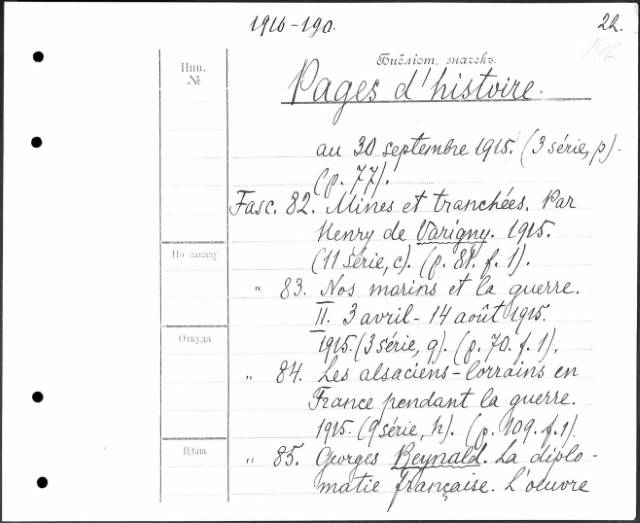 1916-190.
22.
Библіот. значекъ
Инв.
№
Pages d'histoire.
au 30 septembre 1915. (3 série, p).
(p. 77).
Fasc. 82. Mines et tranchées. Par
Henry de Varigny. 1915.
(11 série, c). (p. 81. f. 1).
По заказу
" 83. Nos marins et la guerre.
II. 3 avril - 14 août 1915.
1915. (3 série, q). (p. 70. f. 1).
Откуда
" 84. Les alsaciens-lorrains en
France pendant la guerre.
1915. (9 série, h). (p. 109. f. 1).
Цѣна
" 85. Georges Reynald. La diplo-
matie française. L'oeuvre